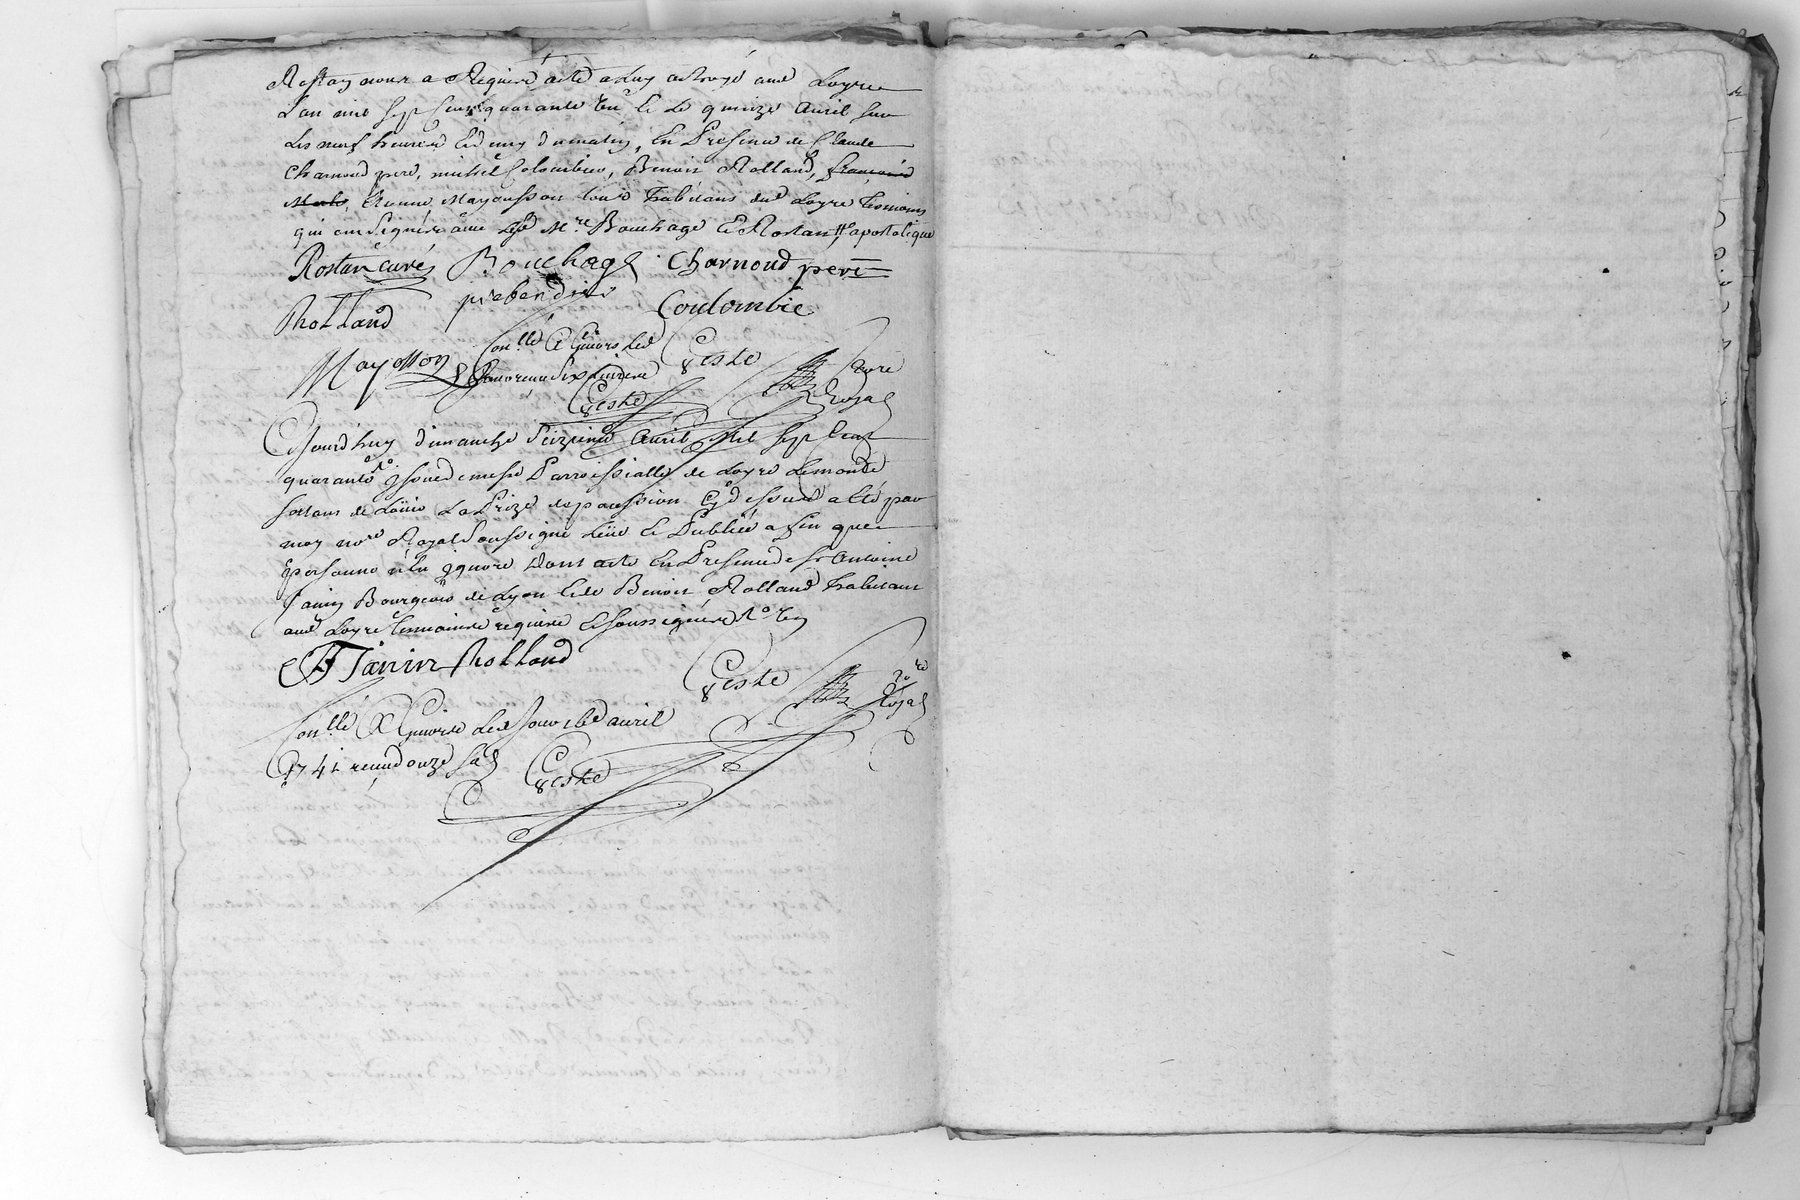 Rostaing nous a Requis acte a luy octroyé aud Loyre
L'an mil sept Cent quarante un et le quinze avril sur
Les neuf heures et demy du matin, En Presence de Claude
Charnoud pere, michel Colombier, Benoit Rolland, françois
Merle, Mayousson tous habitans dud Loyre temoins
qui ont signés avec led Mre Bouchage et Rostan apostolique
Rostan curé Bouchage Charnoud pere
prebendier
Rolland Coulombie
Mayosson Conllé A Givors led Geste nore
Royal
Geste
Cejourd'huy dimanche seizieme avril Mil sept Cent
quarante un issue de messe Parroissialle de Loyre Le monde
sortans de La Prize de possession Cy dessus a été par
moy nore Royal soussigné Leüe et Publiée a fin que
personne n'En ignore Dont acte En Presence de sr Antoine
Janin Bourgeois de Lyon et de Benoit Rolland habitant
aud Loyre temoins requis et soussignés
A Janin Rolland
Geste nore
Royal
Conllé A Givors led Jour 16e avril
1741 receu douze sols Geste